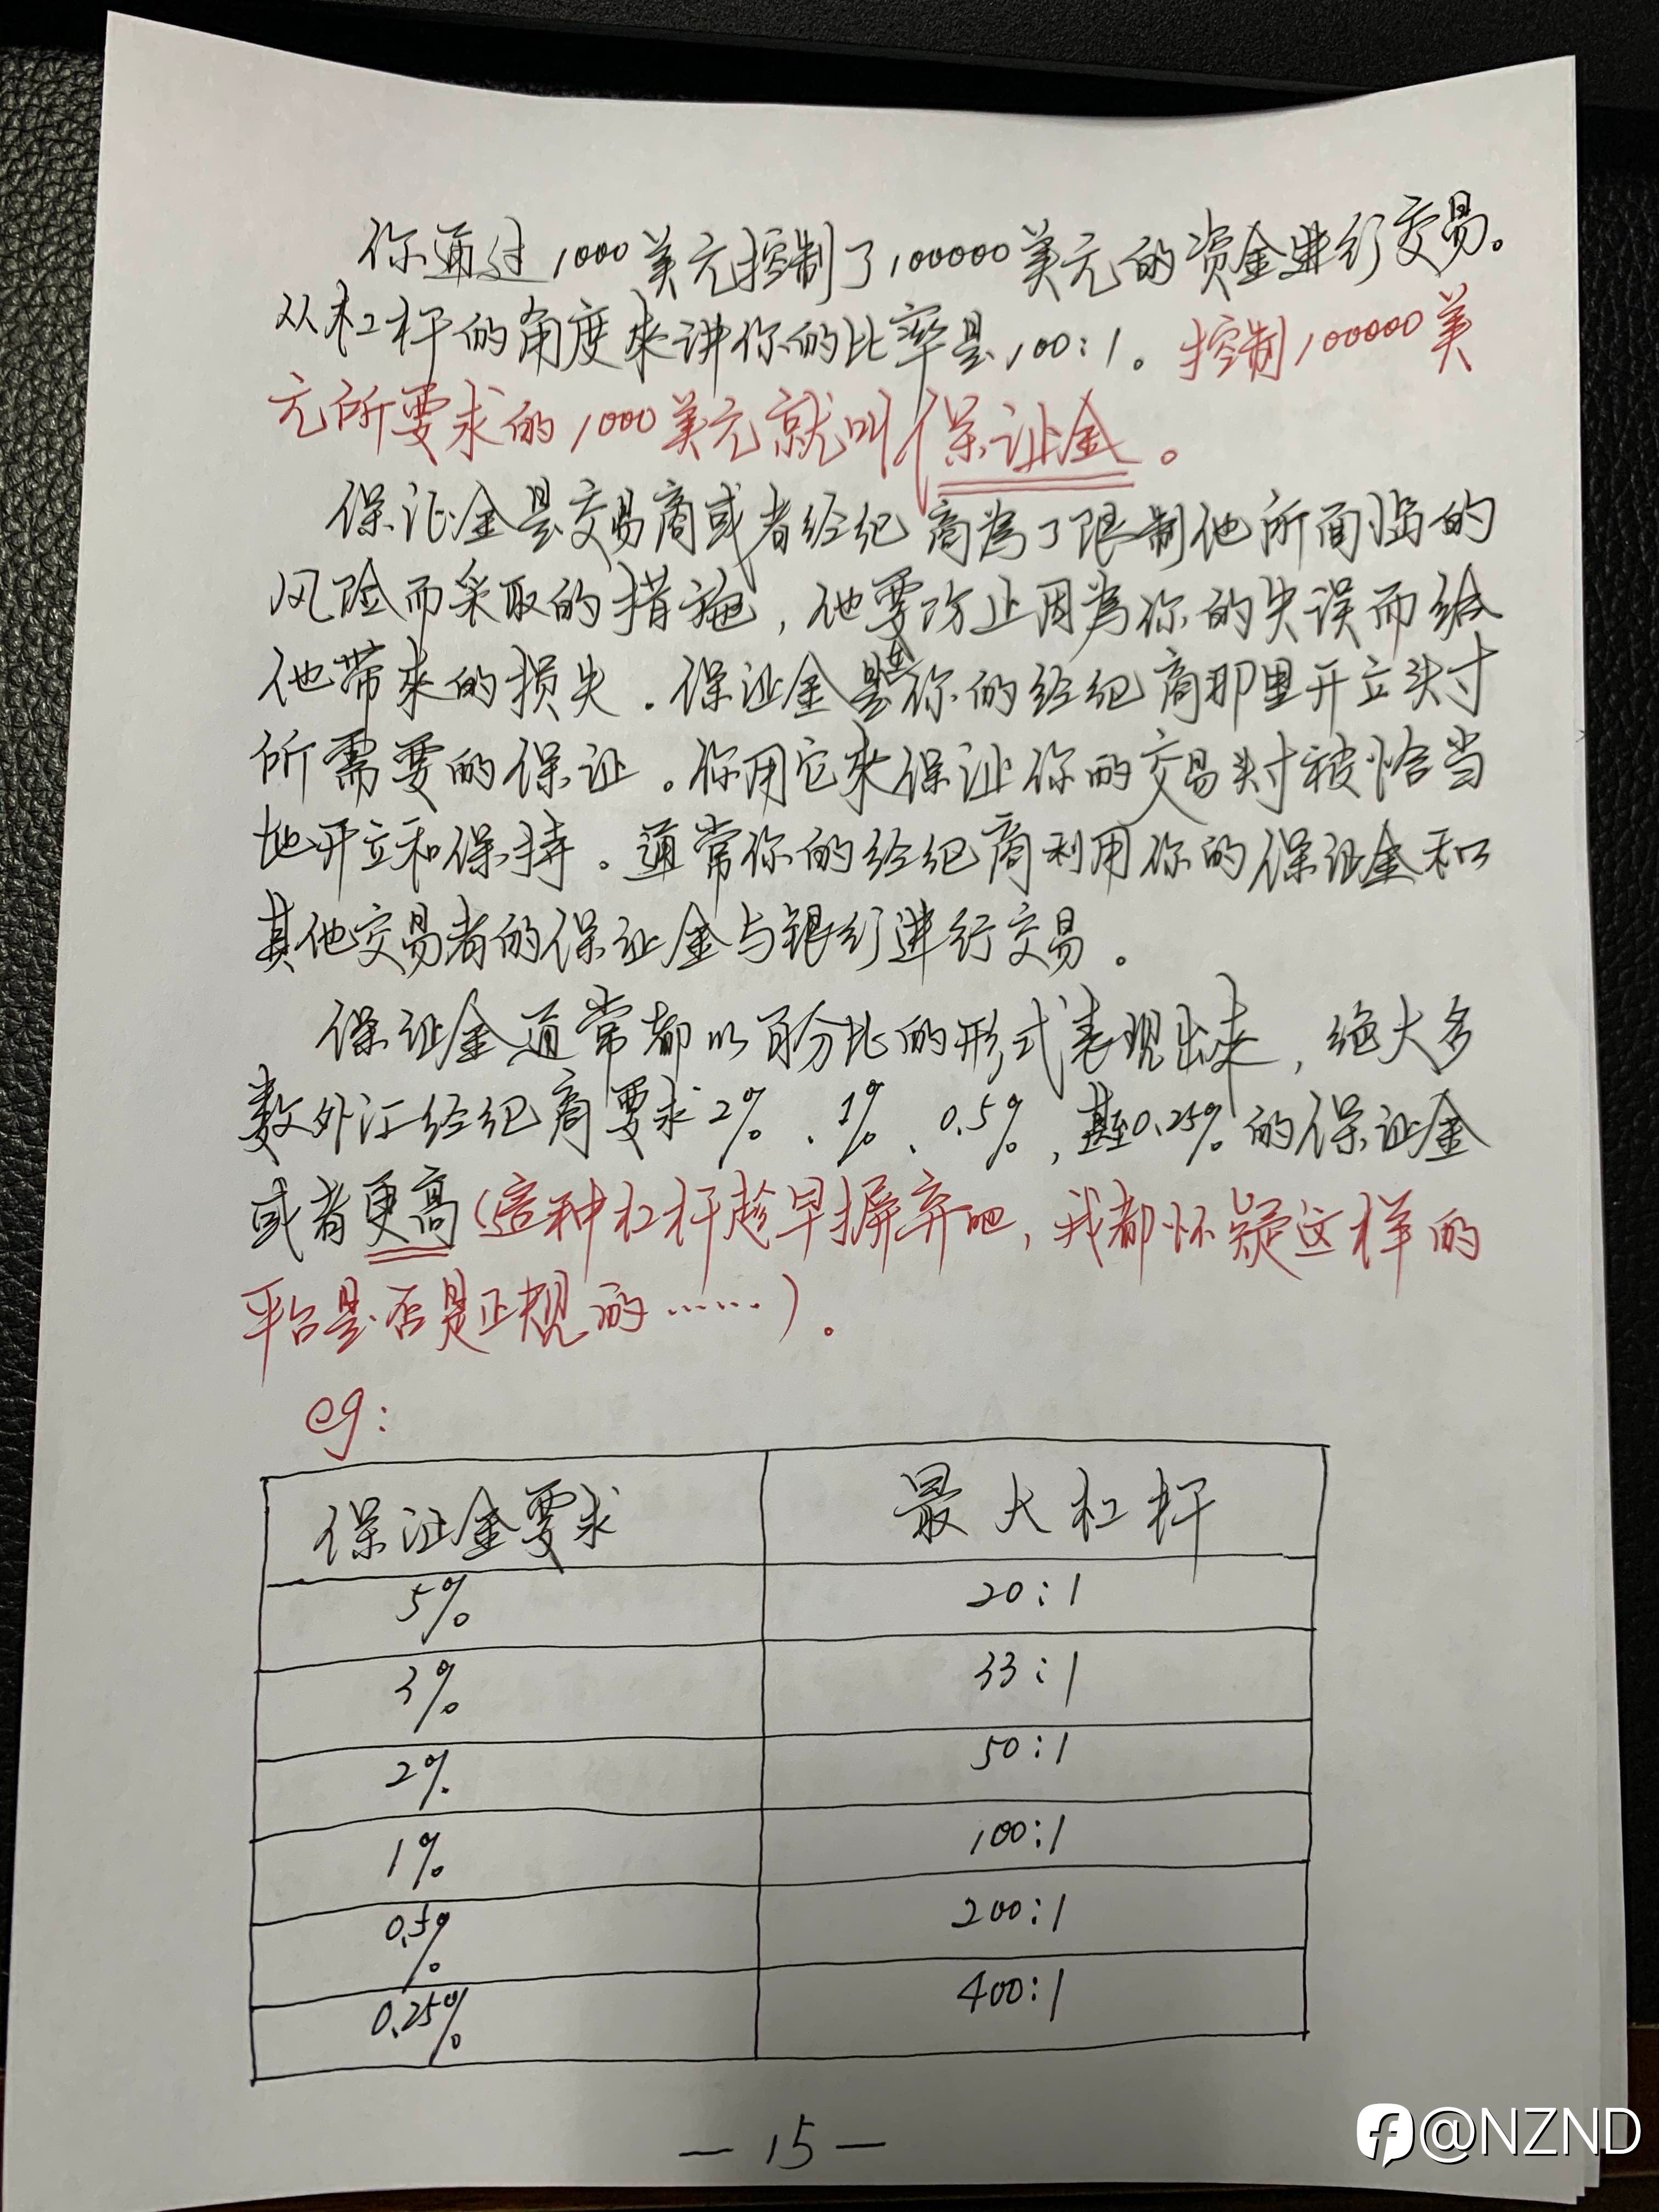 你通过1000美元控制了100000美元的资金进行交易。
从杠杆的角度来讲你的比率是100:1。控制100000美
元所要求的1000美元就叫保证金。
保证金是交易商或者经纪商為了限制他所面临的
风险而采取的措施，他要防止因為你的失误而给
他带來的损失.保证金是在你的经纪商那里开立头寸
所需要的保证。你用它来保证你的交易头寸被恰当
地开立和保持。通常你的经纪商利用你的保证金和
其他交易者的保证金与银行进行交易。
保证金通常都以百分比的形式表现出来，绝大多
数外汇经纪商要求2%、1%、0.5%,甚至0.25%的保证金
或者更高(这种杠杆趁早摒弃吧,我都怀疑这样的
平台是否是正规的……)。
eg:
保证金要求 最大杠杆
5% 20:1
3% 33:1
2% 50:1
1% 100:1
0.5% 200:1
0.25% 400:1
—15—
@NZND